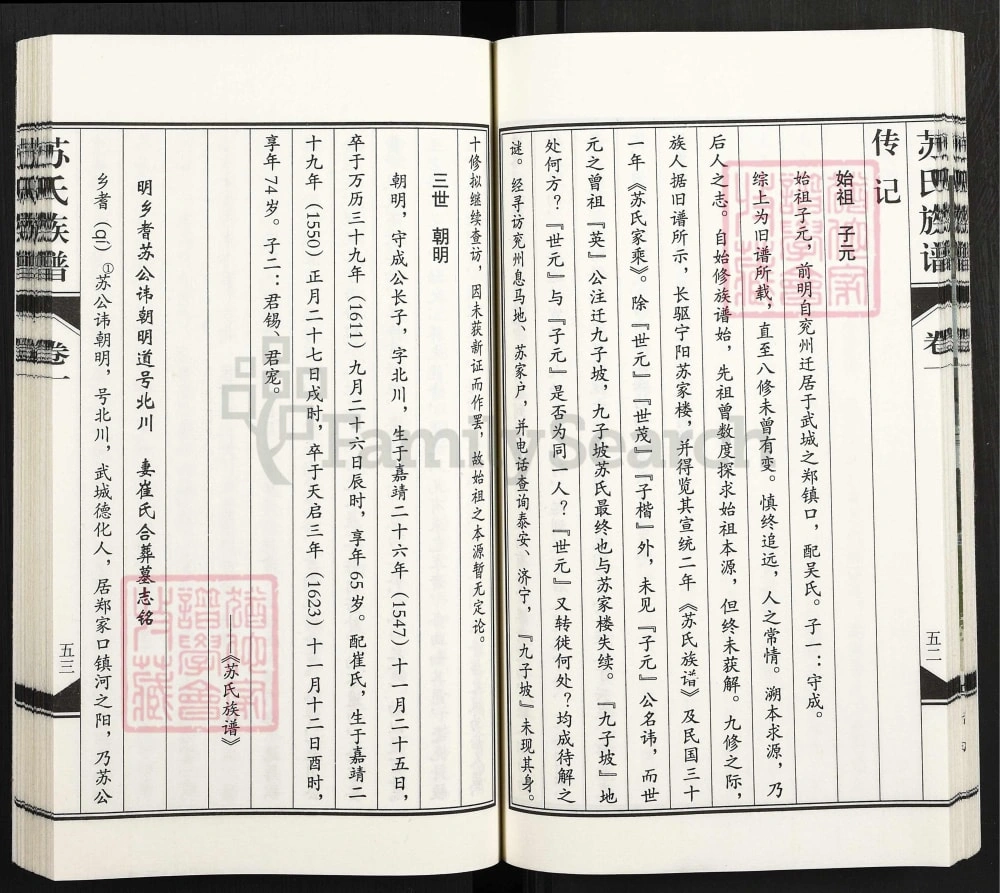 苏氏族谱
卷一
五二
传记
始祖 子元
始祖子元，前明自兖州迁居于武城之郑镇口，配吴氏。子一：守成。
综上为旧谱所载，直至八修未曾有变。慎终追远，人之常情。溯本求源，乃
后人之志。自始修族谱始，先祖曾数度探求始祖本源，但终未获解。九修之际，
族人据旧谱所示，长驱宁阳苏家楼，并得览其宣统二年《苏氏族谱》及民国三十
一年《苏氏家乘》。除『世元』『世茂』『子楷』外，未见『子元』公名讳，而世
元之曾祖『英』公注迁九子坡，九子坡苏氏最终也与苏家楼失续。『九子坡』地
处何方？『世元』与『子元』是否为同一人？『世元』又转徙何处？均成待解之
谜。经寻访兖州息马地、苏家户，并电话查询泰安、济宁，『九子坡』未现其身。
十修拟继续查访，因未获新证而作罢，故始祖之本源暂无定论。
三世 朝明
朝明，守成公长子，字北川，生于嘉靖二十六年（1547）十一月二十五日，
卒于万历三十九年（1611）九月二十六日辰时，享年65岁。配崔氏，生于嘉靖二
十九年（1550）正月二十七日戌时，卒于天启三年（1623）十一月十二日酉时，
享年74岁。子二：君锡、君宠。
——《苏氏族谱》
明乡耆苏公讳朝明道号北川 妻崔氏合葬墓志铭
乡耆（qí）①苏公讳朝明，号北川，武城德化人，居郑家口镇河之阳，乃苏公
苏氏族谱
卷一
五三
FamilySearch